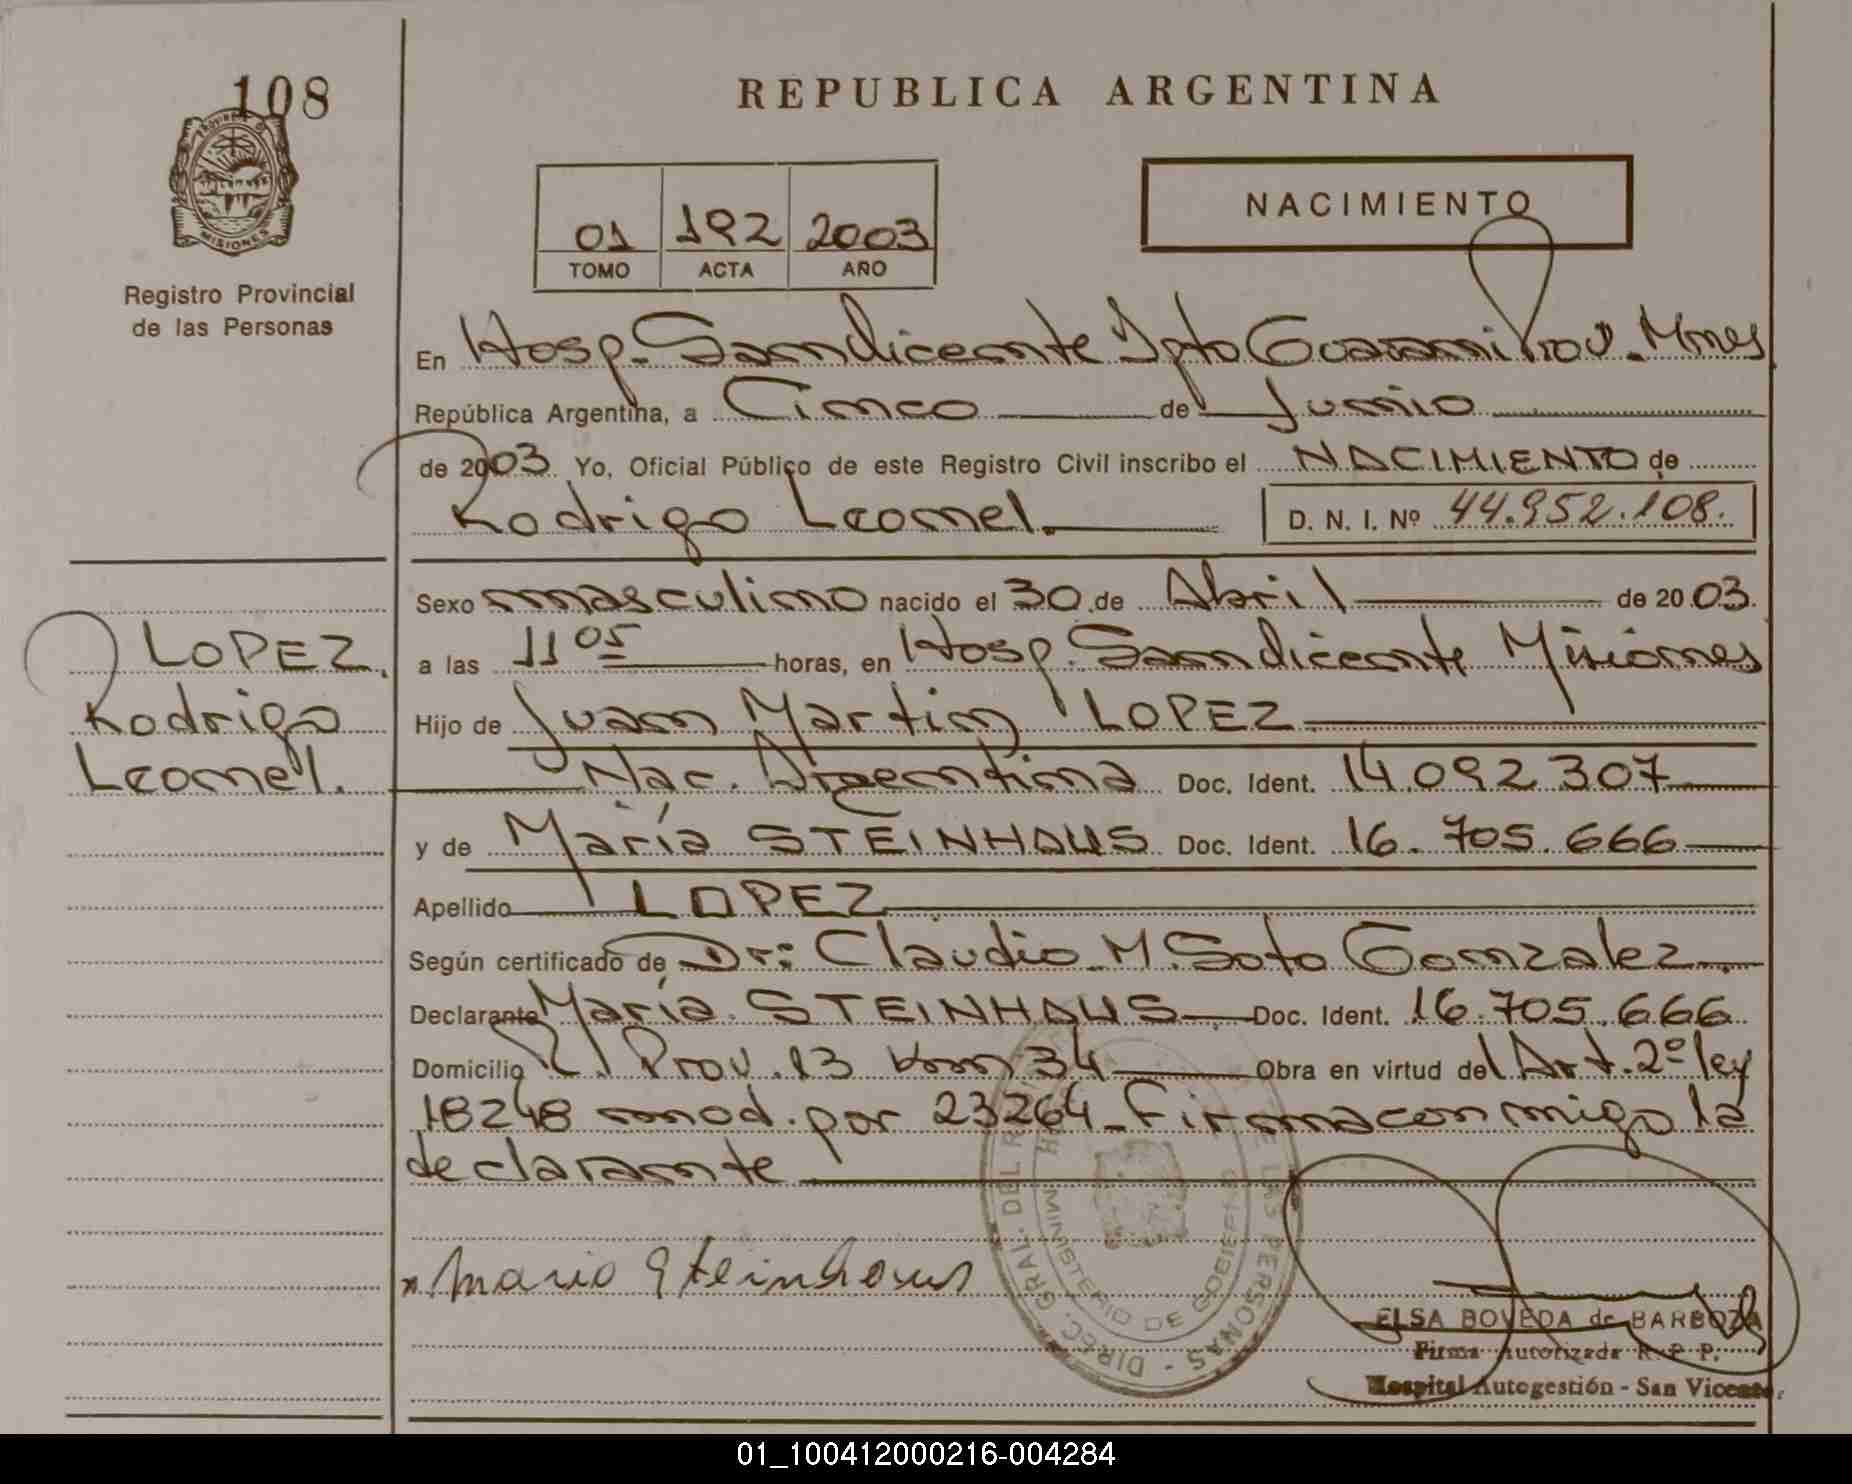 108
PROVINCIA DE
MISIONES
Registro Provincial
de las Personas
REPUBLICA ARGENTINA
01 192 2003
TOMO ACTA AÑO
NACIMIENTO
En Hosp. San Vicente Dpto Guarani Prov. Mnes
República Argentina, a Cinco de Junio
de 2003 Yo, Oficial Público de este Registro Civil inscribo el NACIMIENTO de
Rodrigo Leonel. D. N. I. Nº 44.952.108.
Sexo masculino nacido el 30 de Abril de 2003.
LOPEZ
a las 11 05 horas, en Hosp. San Vicente Misiones
Rodrigo
Hijo de Juan Martin LOPEZ
Leonel.
Nac. Argentina Doc. Ident. 14.092.307
y de María STEINHAUS Doc. Ident. 16.705.666
Apellido LOPEZ
Según certificado de Dr: Claudio M. Soto Gonzalez
Declarante María STEINHAUS Doc. Ident. 16.705.666
Domicilio R. Prov. 13 Km 34 Obra en virtud del Art. 2º ley
18248 mod. por 23264. Firma con migo la
declarante
DIREC. GRAL. DEL R DE LAS PERSONAS
MINISTERIO DE GOBIERNO
Maria Steinhaus
ELSA BOVEDA de BARBOZA
Firma Autorizada R. P. P.
Hospital Autogestión - San Vicente
01_100412000216-004284